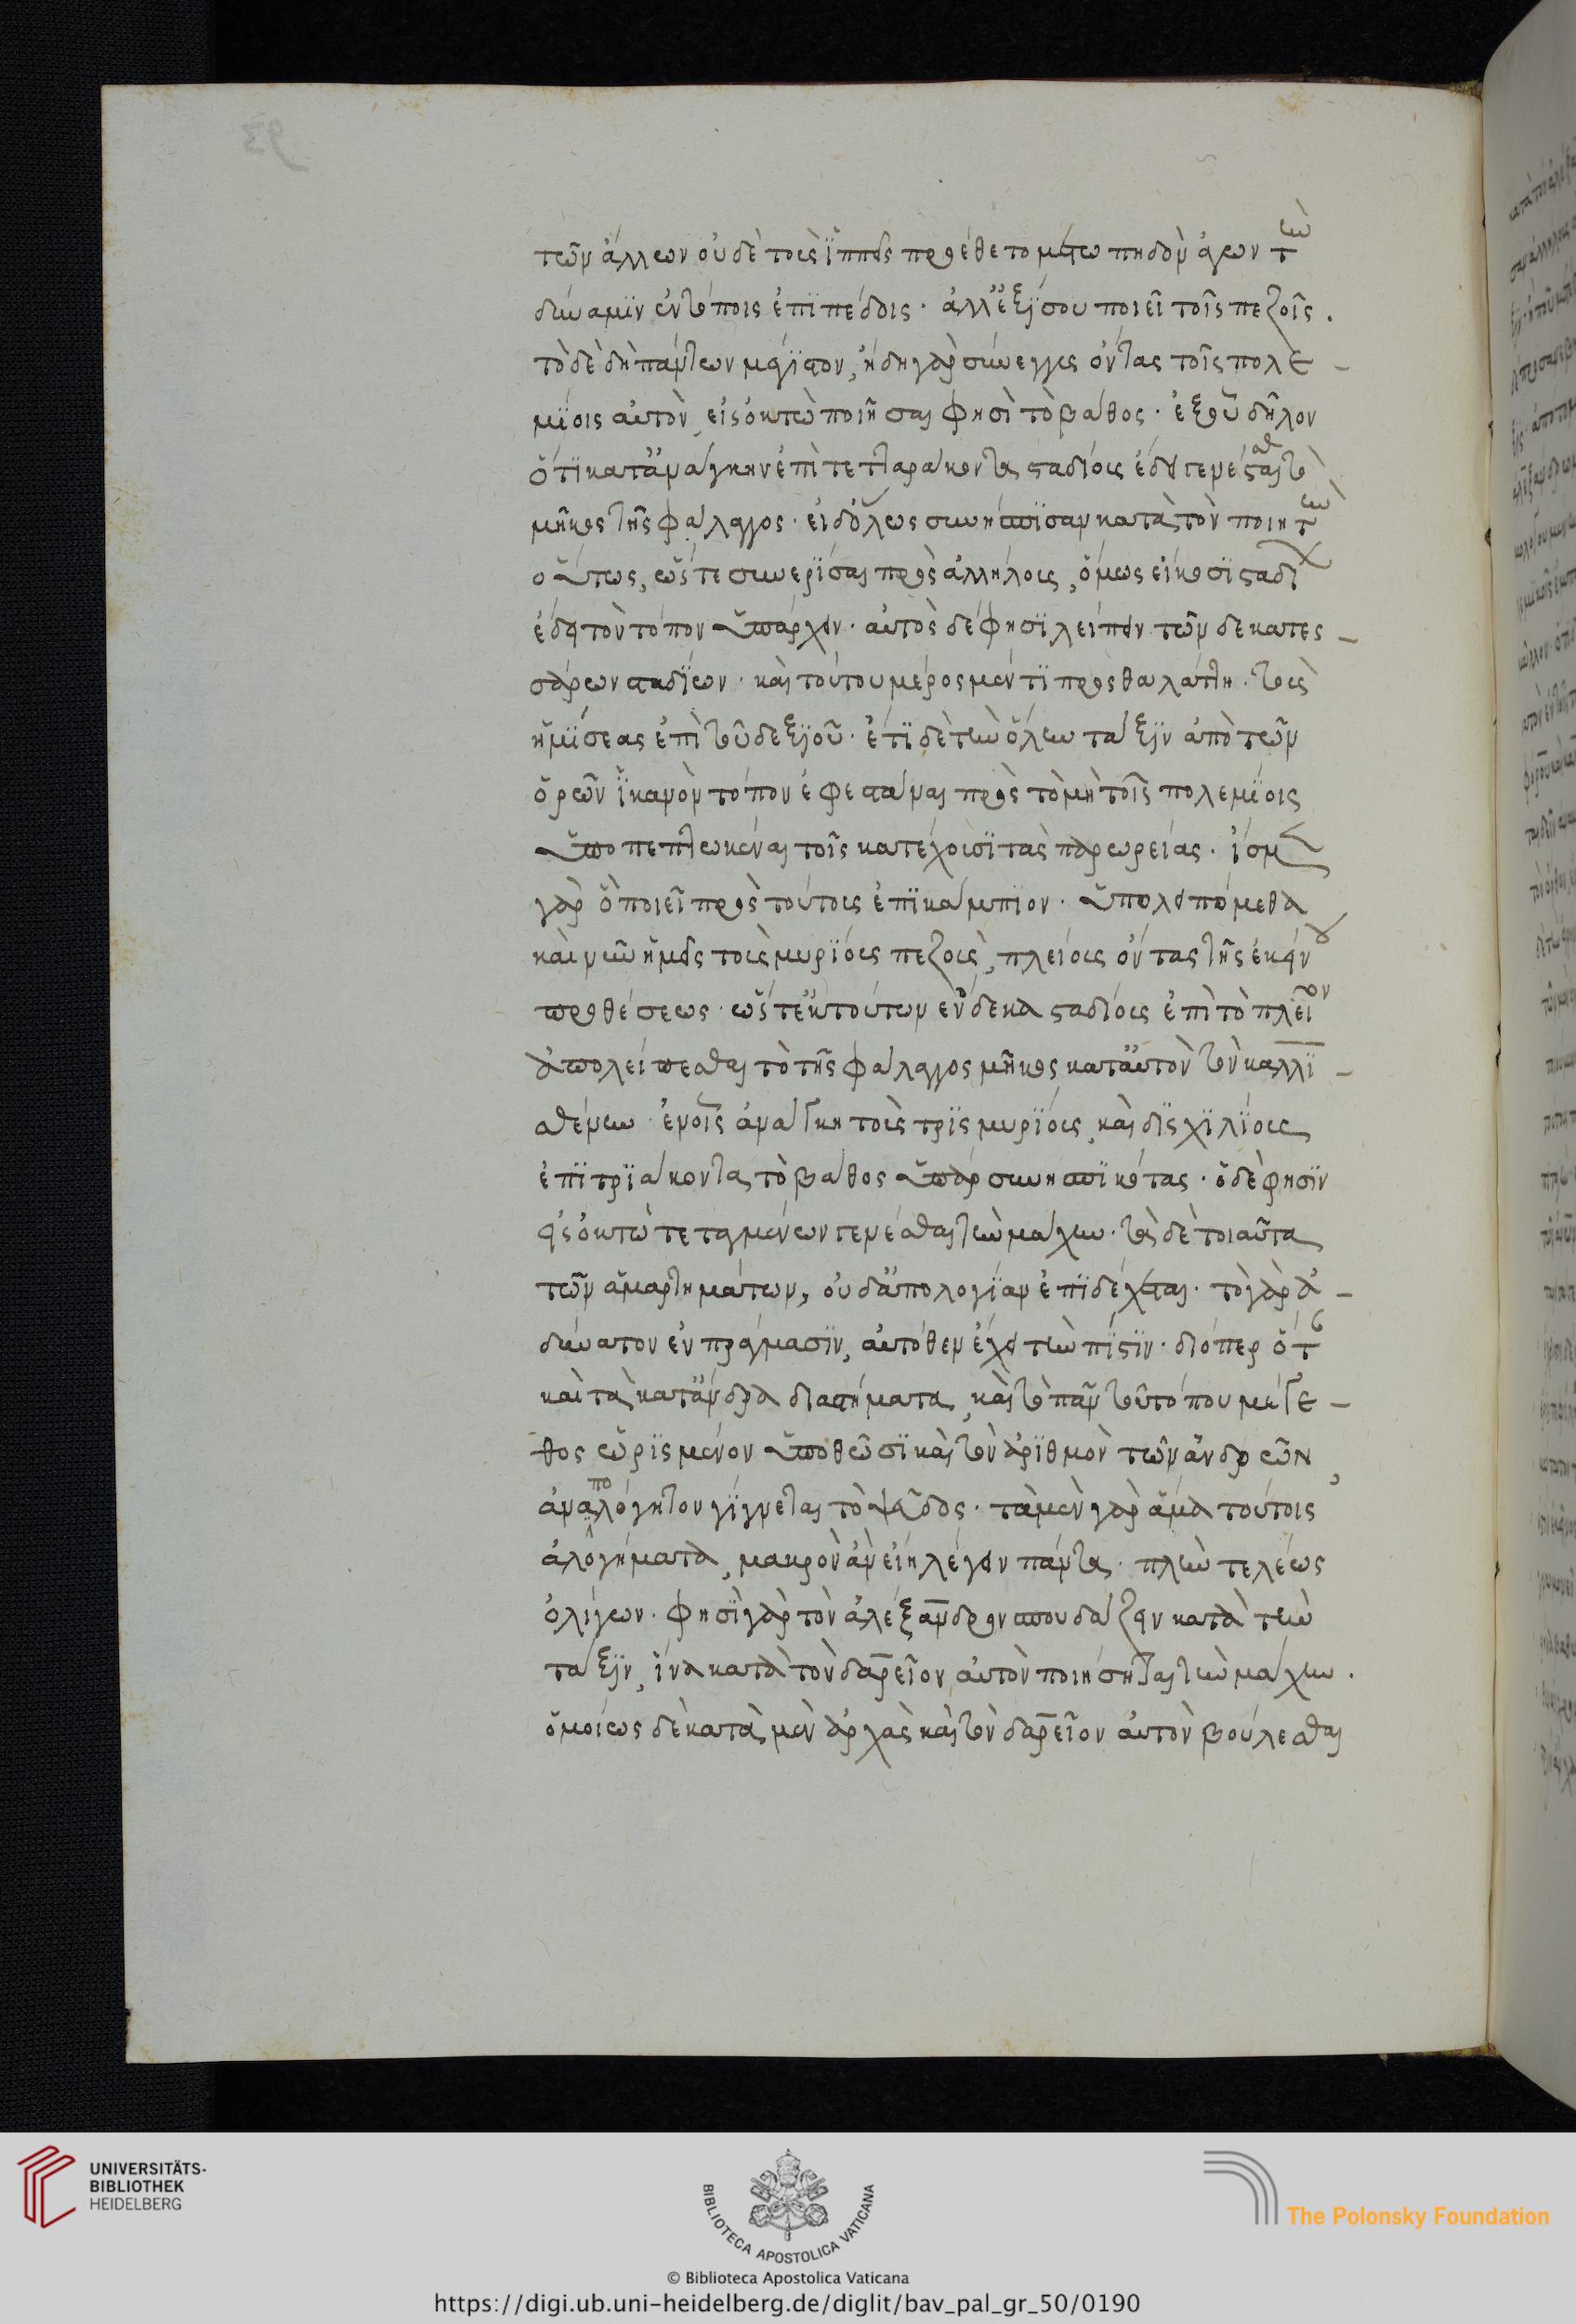 τῶν ἄλλων οὐδὲ τοὺς ἵππεῖς προέθετο μετωπηδὸν ἄγων τὴν
δύναμιν ἐν τόποις ἐπιπέδοις · ἀλλ' ἐξ ἴσου ποιεῖ τοῖς πεζοῖς .
τὸ δὲ δὴ πάντων μέγιστον, ἤδη γὰρ σύνεγγυς ὄντας τοῖς πολε -
μίοις αὐτὸν, εἰς ὀκτὼ ποιῆσαι φησὶ τὸ βάθος · ἐξ οὗ δῆλον
ὅτι κατ' ἀνάγκην ἐπὶ τετταράκοντα σταδίους ἔδει γενέσθαι τὸ
μῆκος τῆς φάλαγγος · εἰ δ' ὅλως συνήσπισαν κατὰ τὸν ποιητὴν
οὕτως, ὥστε συνερίσαι πρὸς ἀλλήλους, ὅμως εἴκοσι σταδίων
ἔδει τὸν τόπον ὑπάρχειν · αὐτὸς δέ φησι λείπειν τῶν δεκατες -
σάρων σταδίων · καὶ τούτου μέρος μέν τι πρὸς θαλάττη · τοὺς
ἡμίσεας ἐπὶ τοῦ δεξιοῦ · ἔτι δὲ τὴν ὅλην τάξιν ἀπὸ τῶν
ὁρῶν ἱκανὸν τόπον ἐφεστάναι πρὸς τὸ μὴ τοῖς πολεμίοις
ὑποπεπτωκέναι τοῖς κατέχουσι τὰς παρωρείας · ἴσμεν
γὰρ ὃ ποιεῖ πρὸς τούτους ἐπικάμπιον · ὑπολειπόμεθα
καὶ νῦν ἡμεῖς τοὺς μυρίους πεζοὺς, πλείους ὄντας τῆς ἐκείνου
προθέσεως · ὥστ' ἐκ τούτων ἕνδεκα σταδίους ἐπὶ τὸ πλεῖον
ἀπολείπεσθαι τὸ τῆς φάλαγγος μῆκος κατ' αὐτὸν τὸν καλλι -
σθένην · ἐν οἷς ἀνάγκη τοὺς τρισμυρίους, καὶ δισχιλίους
ἐπὶ τριάκοντα τὸ βάθος ὑπάρ συνησπικότας · ὁ δέ φησιν
εἰς ὀκτὼ τεταγμένων γενέσθαι τὴν μάχην · τὰ δὲ τοιαῦτα
τῶν ἁμαρτημάτων, οὐδ' ἀπολογίαν ἐπιδέχεται · τὸ γὰρ ἀ -
δύνατον ἐν πράγμασιν, αὐτόθεν ἔχει τὴν πίστιν · διόπερ ὅτ
καὶ τὰ κατ' ἄνδρα διαστήματα, καὶ τὸ πᾶν τοῦ τόπου μέγε -
θος ὡρισμένον ὑποθῶσι καὶ τὸν ἀριθμὸν τῶν ἀνδρῶν,
ἀναπολόγητον γίγνεται τὸ ψεῦδος · τὰ μὲν γὰρ ἅμα τούτοις
ἀλογήματα, μακρὸν ἂν εἴη λέγειν πάντα · πλὴν τελέως
ὀλίγων · φησὶ γὰρ τὸν ἀλέξανδρον σπουδάζειν κατὰ τὴν
τάξιν, ἵνα κατὰ τὸν δαρεῖον αὐτὸν ποιήσηται τὴν μάχην .
ὁμοίως δὲ κατὰ μὲν ἀρχὰς καὶ τὸν δαρεῖον αὐτὸν βούλεσθαι
93
UNIVERSITÄTS-
BIBLIOTHEK
HEIDELBERG
BIBLIOTECA APOSTOLICA VATICANA
The Polonsky Foundation
© Biblioteca Apostolica Vaticana
https://digi.ub.uni-heidelberg.de/diglit/bav_pal_gr_50/0190